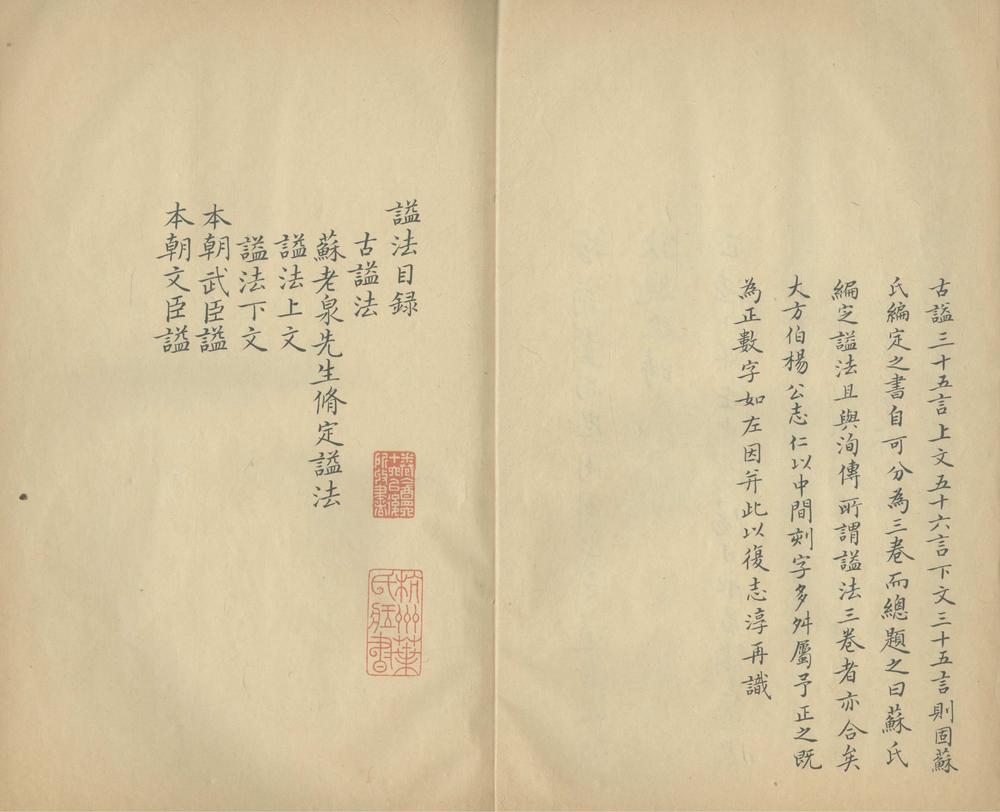 古謚三十五言上文五十六言下文三十五言則固蘇
氏編定之書自可分為三卷而總題之曰蘇氏
編定謚法且與洵傳所謂謚法三卷者亦合矣
大方伯楊公志仁以中間刻字多舛屬予正之既
為正數字如左因并此以復志淳再識
謚法目録
古謚法
蘇老泉先生脩定謚法
謚法上文
謚法下文
本朝武臣謚
本朝文臣謚
杭州葉
氏藏書